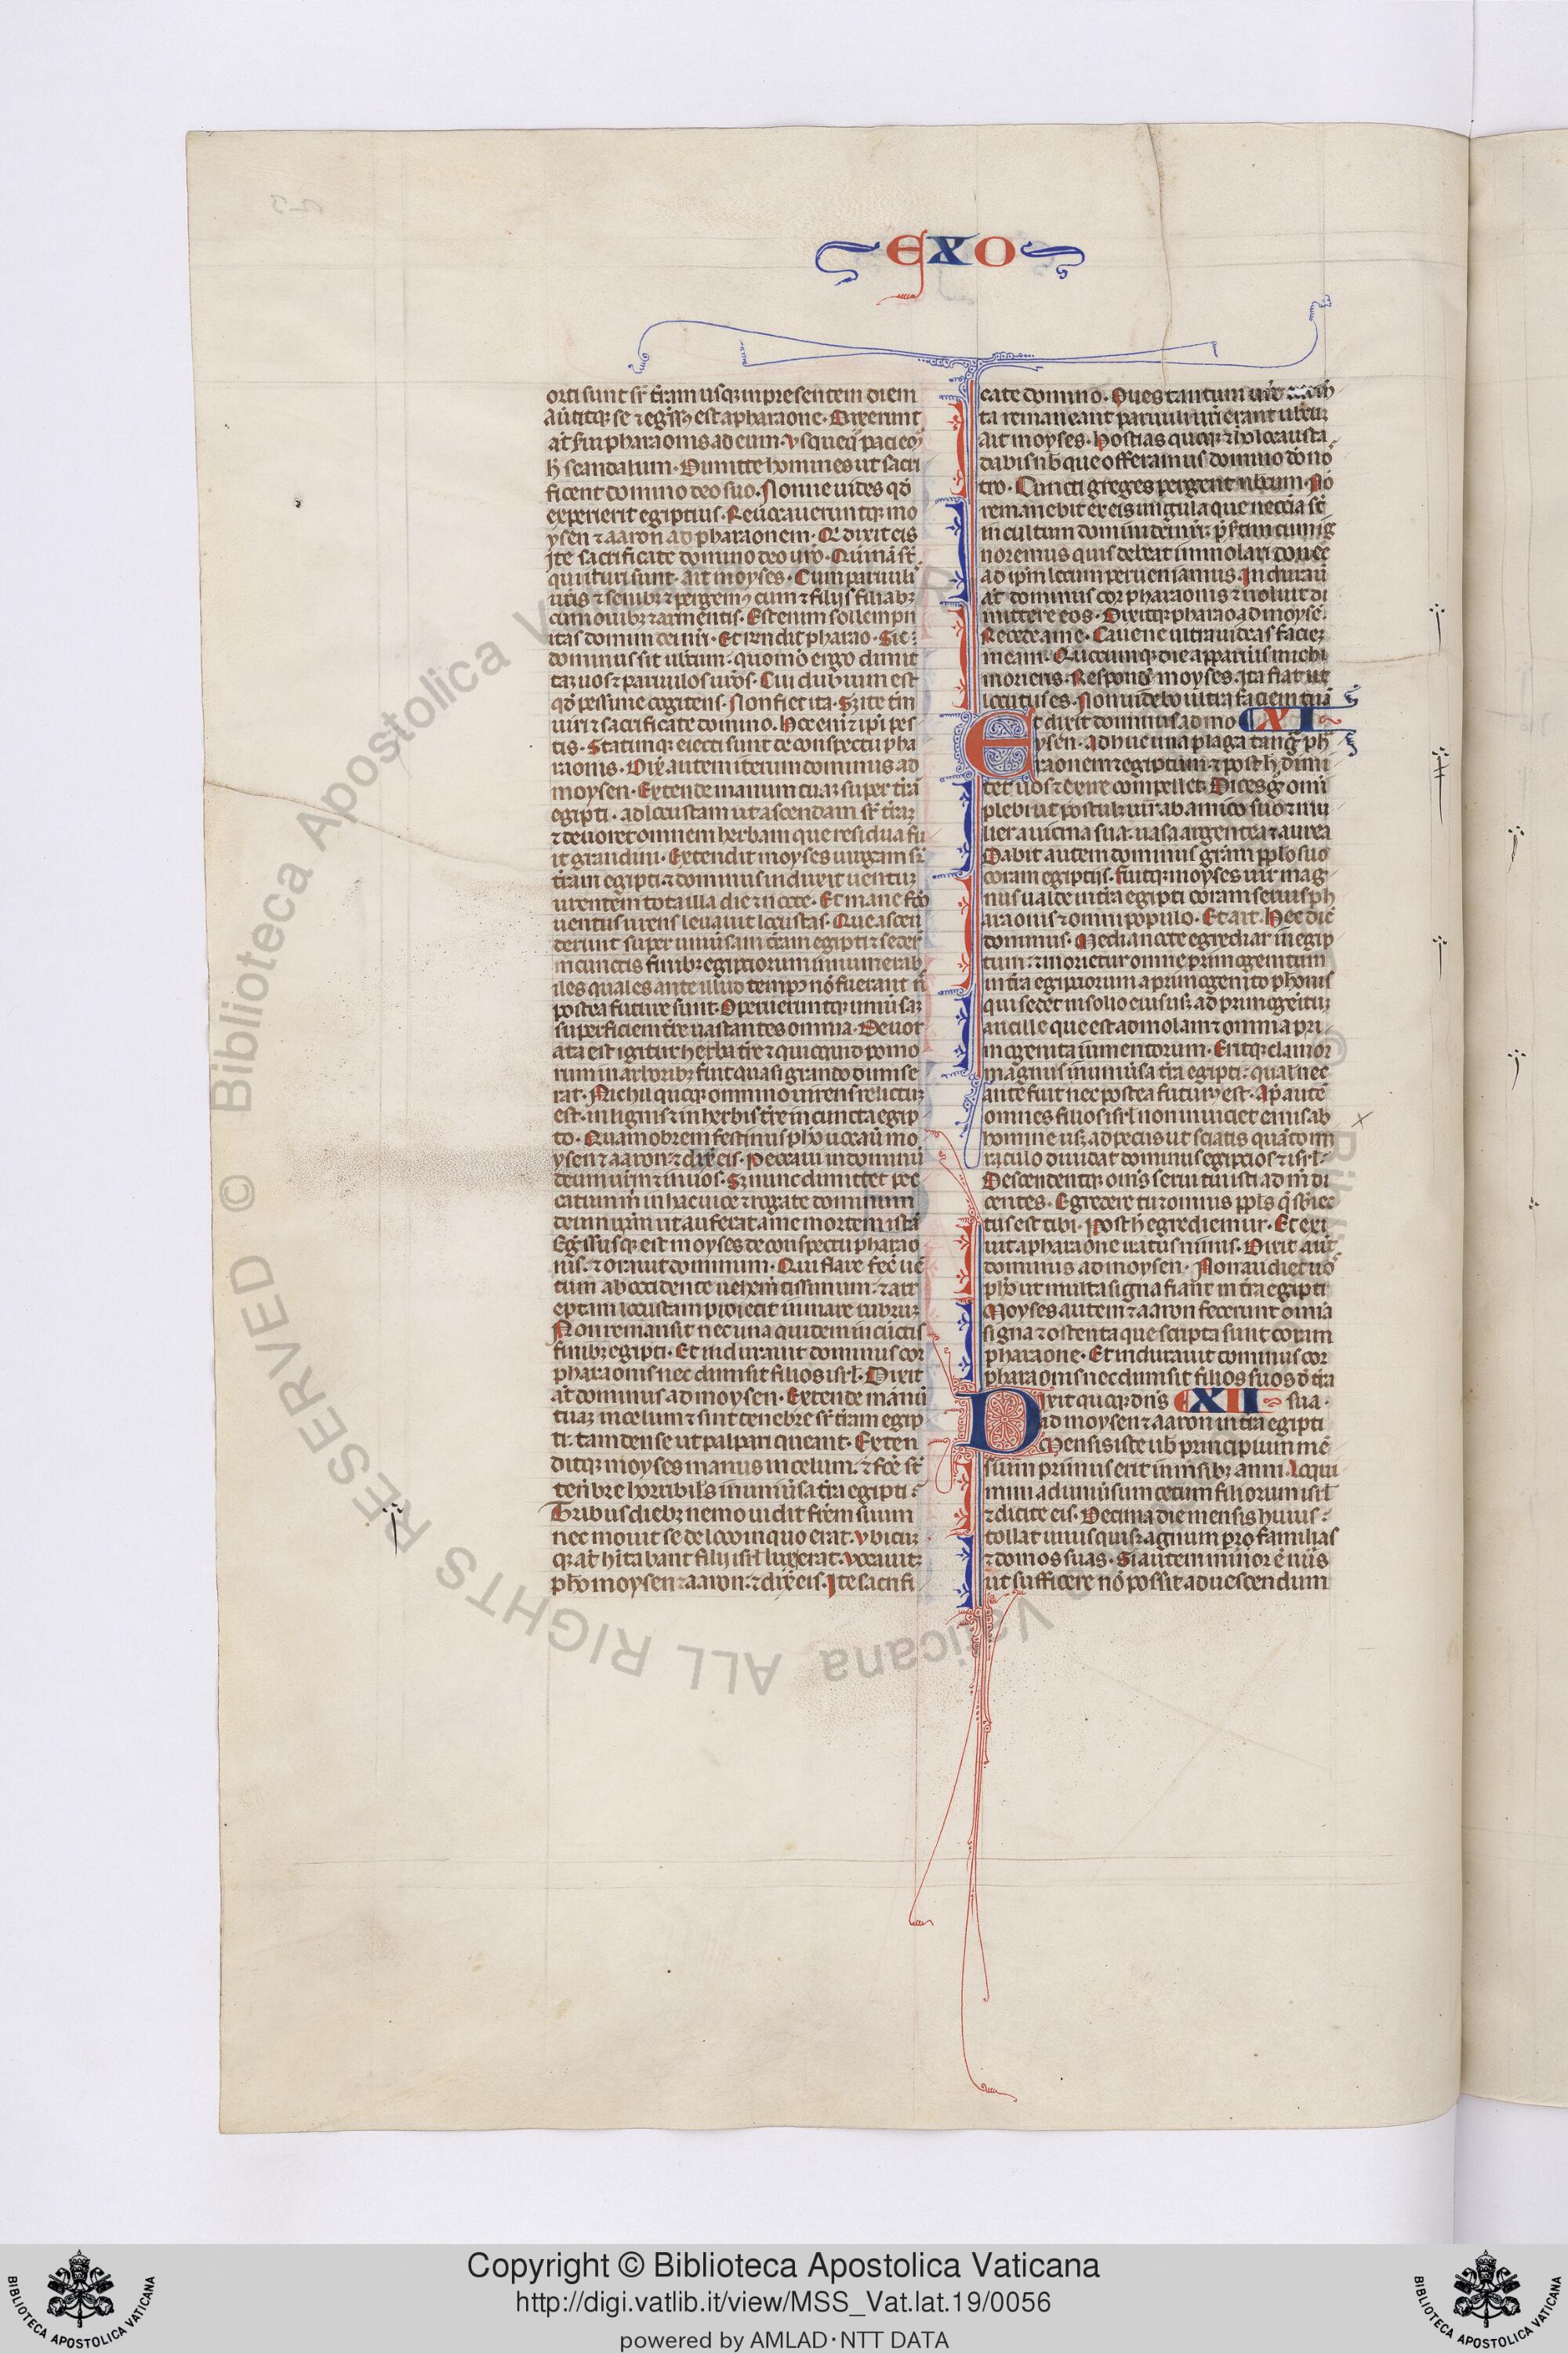 EXO
orti sunt sr̄ t̄ram usq; in presentem diem
au̾titq; se ⁊ eg̾ss9 est a pharaone. Dixerunt
aūt serui pharaonis ad eum. Vsquequo paciem̃
h̾ scandalum. Dimitte homines ut sacri
ficent domino deo suo. Nonne uides qd̾
experierit egiptius. Reuocaueruntq; mo
ysen ⁊ aaron ad pharaonem. Qi dixit eis
Ite sacrificate domino deo ur̄o. Quinā st̄
qui ituri sunt. ait moyses. Cum paruuli
ur̄is ⁊ senib; ⁊ pergem9 cum ⁊ filijs filiab;
cum ouib; ⁊ armentis. Est enim sollempn
itas domini dei nr̄i. Et rn̄dit pharao. Sic
dominus sit uobcum. quomo ergo dimit
tam uos ⁊ paruulos ur̄os. Cui dubium est
qd̾ pessime cogitetis. Non fiet ita. Sz ite tm̄
uiri ⁊ sacrificate domino. Hoc eni ⁊ ip̄i pes
tis. Statimq; eiecti sunt de conspectu pha
raonis. Dix̄ autem iterum dominus ad
moysen. Extende manum tuam super t̄rā
egipti. ad locustam ut ascendam sr̄ t̄rm
⁊ deuoret omnem herbam que residua fu
it grandini. Extendit moyses uirgam sr̄
t̄ram egipti ⁊ dominus induxit uentum
urentem tota illa die ⁊ nocte. Et mane fc̄o
uentus urens leuauit locustas. Que ascen
derunt super uniūsam t̄ram egipti ⁊ seder̄
in cunctis finib; egiptiorum innumerab
iles quales ante illud temp9 nō fuerant n̄
postea future sunt. Operueruntq; uniūsam
superficiem t̄re uastantes omnia. Deuor
ata est igitur herba t̄re ⁊ quicquid pomo
rum in arborib; fuit quasi grando dimise
rat. Nichil quoq; omnino uirens relictum
est. in lignis ⁊ in herbis t̄re in cuncta egip
to. Quamobrem festinus pho uocauit mo
ysen ⁊ aaron. ⁊ dix̄ eis. Peccaui in dominū
deum ur̄m ⁊ in uos. Sz nunc dimittet pec
catum m̄ in hac uice ⁊ rogate dominum
deum ur̄m ut auferat a me mortem istā
Eg̾ssusq; est moyses de conspectu pharao
nis. ⁊ orauit dominum. Qui flare fec̄ uē
tum ab occidente uehem̄tissimum. ⁊ arr
eptam locustam proiecit in mare rubrum
Non remansit nec una quidem in cūctis
finib; egipti. Et indurauit dominus cor
pharaonis nec dimisit filios isrl̄. Dixit
aūt dominus ad moysen. Extende manū
tuam in celum ⁊ sint tenebre sr̄ t̄ram egip
ti. tam dense ut palpari queant. Exten
ditq; moyses manus in celum. ⁊ fc̄e st̄
teneb̄re horribiles in uniūsa t̄ra egipti.
Tribus dieb; nemo uidit fr̄em suum
nec mouit se de loco in quo erat. Vbicum
q; aūt hitabant filij isrl̄ lux erat. Vocauitq;
pho moysen ⁊ aaron. ⁊ dix̄ eis. Ite sacrifi
cate domino. Oues tantum ur̄e
ta remaneant paruuli ur̄i erant uobcum
Ait moyses. Hostias quoq; ⁊ holocausta
dabis nob̄ que offeramus domino dō no
stro. Cuncti greges pergent nobcum. Nō
remanebit ex eis ungula que nec̄cia st̄
in cultum domini dei nr̄i. p̄sertim cum ig
noremus quid debeat immolari donec
ad ip̄m locum perueniamus. Indurauit
aūt dominus cor pharaonis ⁊ noluit di
mittere eos. Dixitq; pharao ad moysē.
Recede a me. Caue ne ultra uideas faciem
meam. Quocumq; die apparueris michi
morieris. Respond̾ moyses. Ita fiat ut
locutus es. Non uidebo ultra faciem tuā
Et dixit dominus ad mo XI
ysen. Adhuc una plaga tang̃ ph
araonem ⁊ egiptum. ⁊ post h̾ dimi
tet uos ⁊ exire compellet. Dices g̾ omī
plebi ut postulet uir ab amico suo ⁊ mu
lier a uicina sua. uasa argentea ⁊ aurea
Dabit autem dominus grām pplo suo
coram egiptijs. fuitq; moyses uir mag
nus ualde in t̄ra egipti coram seruis ph
araonis ⁊ omni populo. Et ait. Hec dic̄
dominus. Media nocte egrediar in egip
tum. ⁊ morietur omne primogenitum
in t̄ra egiptiorum a primogenito phonis
qui sedet in solio eius us; ad primogenitum
ancille que est ad molam ⁊ omnia pri
mogenita iumentorum. Eritq; clamor
magnus in uniūsa t̄ra egipti. qualis nec
ante fuit nec postea futur9 est. Apd̾ autē
omnes filios isrl̄ non mutiet canis ab
homine us; ad pecus ut sciatis quāto mi
raculo diuidat dominus egiptios ⁊ isrl̄.
Descendentq; omēs serui tui isti ad m̄ di
centes. Egredere tu ⁊ omnis ppls q̄ sbiec
tus est tibi. Post h̾ egrediemur. Et exi
uit a pharaone iratus nimis. Dixit aūt
dominus ad moysen. Non audiet uos
pho ut multa signa fiant in t̄ra egipti
Moyses autem ⁊ aaron fecerunt omnia
signa ⁊ ostenta que scripta sunt coram
pharaone. Et indurauit dominus cor
pharaonis nec dimisit filios suos d̾ t̄ra
Dixit quoq; dn̄s XII sua.
ad moysen ⁊ aaron in t̄ra egipti
Mensis iste uob̄ principium mē
sium primus erit in m̄sib; anni. Loqui
mini ad uniūsum cetum filiorum isrl̄
⁊ dicite eis. Decima die mensis huius
tollat unusquisq; agnum pro familias
⁊ domos suas. Si autem minor ē nūs
ut sufficere nō possit ad uescendum
© Biblioteca Apostolica Vaticana ALL RIGHTS RESERVED
Copyright © Biblioteca Apostolica Vaticana
http://digi.vatlib.it/view/MSS_Vat.lat.19/0056
powered by AMLAD·NTT DATA
BIBLIOTECA APOSTOLICA VATICANA
BIBLIOTECA APOSTOLICA VATICANA